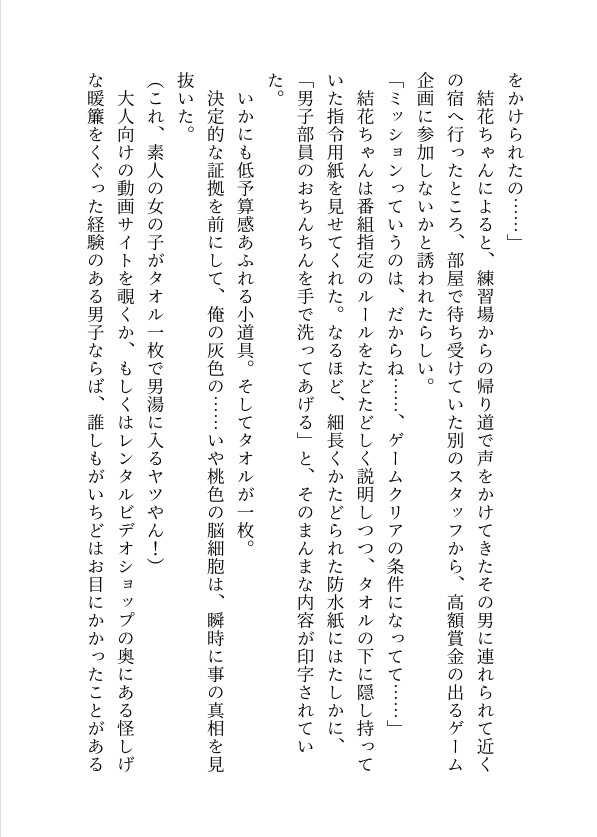 をかけられたの……」
　結花ちゃんによると、練習場からの帰り道で声をかけてきたその男に連れられて近く
の宿へ行ったところ、部屋で待ち受けていた別のスタッフから、高額賞金の出るゲーム
企画に参加しないかと誘われたらしい。
「ミッションっていうのは、だからね……、ゲームクリアの条件になってて……」
　結花ちゃんは番組指定のルールをたどたどしく説明しつつ、タオルの下に隠し持って
いた指令用紙を見せてくれた。なるほど、細長くかたどられた防水紙にはたしかに、
「男子部員のおちんちんを手で洗ってあげる」と、そのまんまな内容が印字されてい
た。
　いかにも低予算感あふれる小道具。そしてタオルが一枚。
　決定的な証拠を前にして、俺の灰色の……いや桃色の脳細胞は、瞬時に事の真相を見
抜いた。
（これ、素人の女の子がタオル一枚で男湯に入るヤツやん！）
　大人向けの動画サイトを覗くか、もしくはレンタルビデオショップの奥にある怪しげ
な暖簾をくぐった経験のある男子ならば、誰しもがいちどはお目にかかったことがある